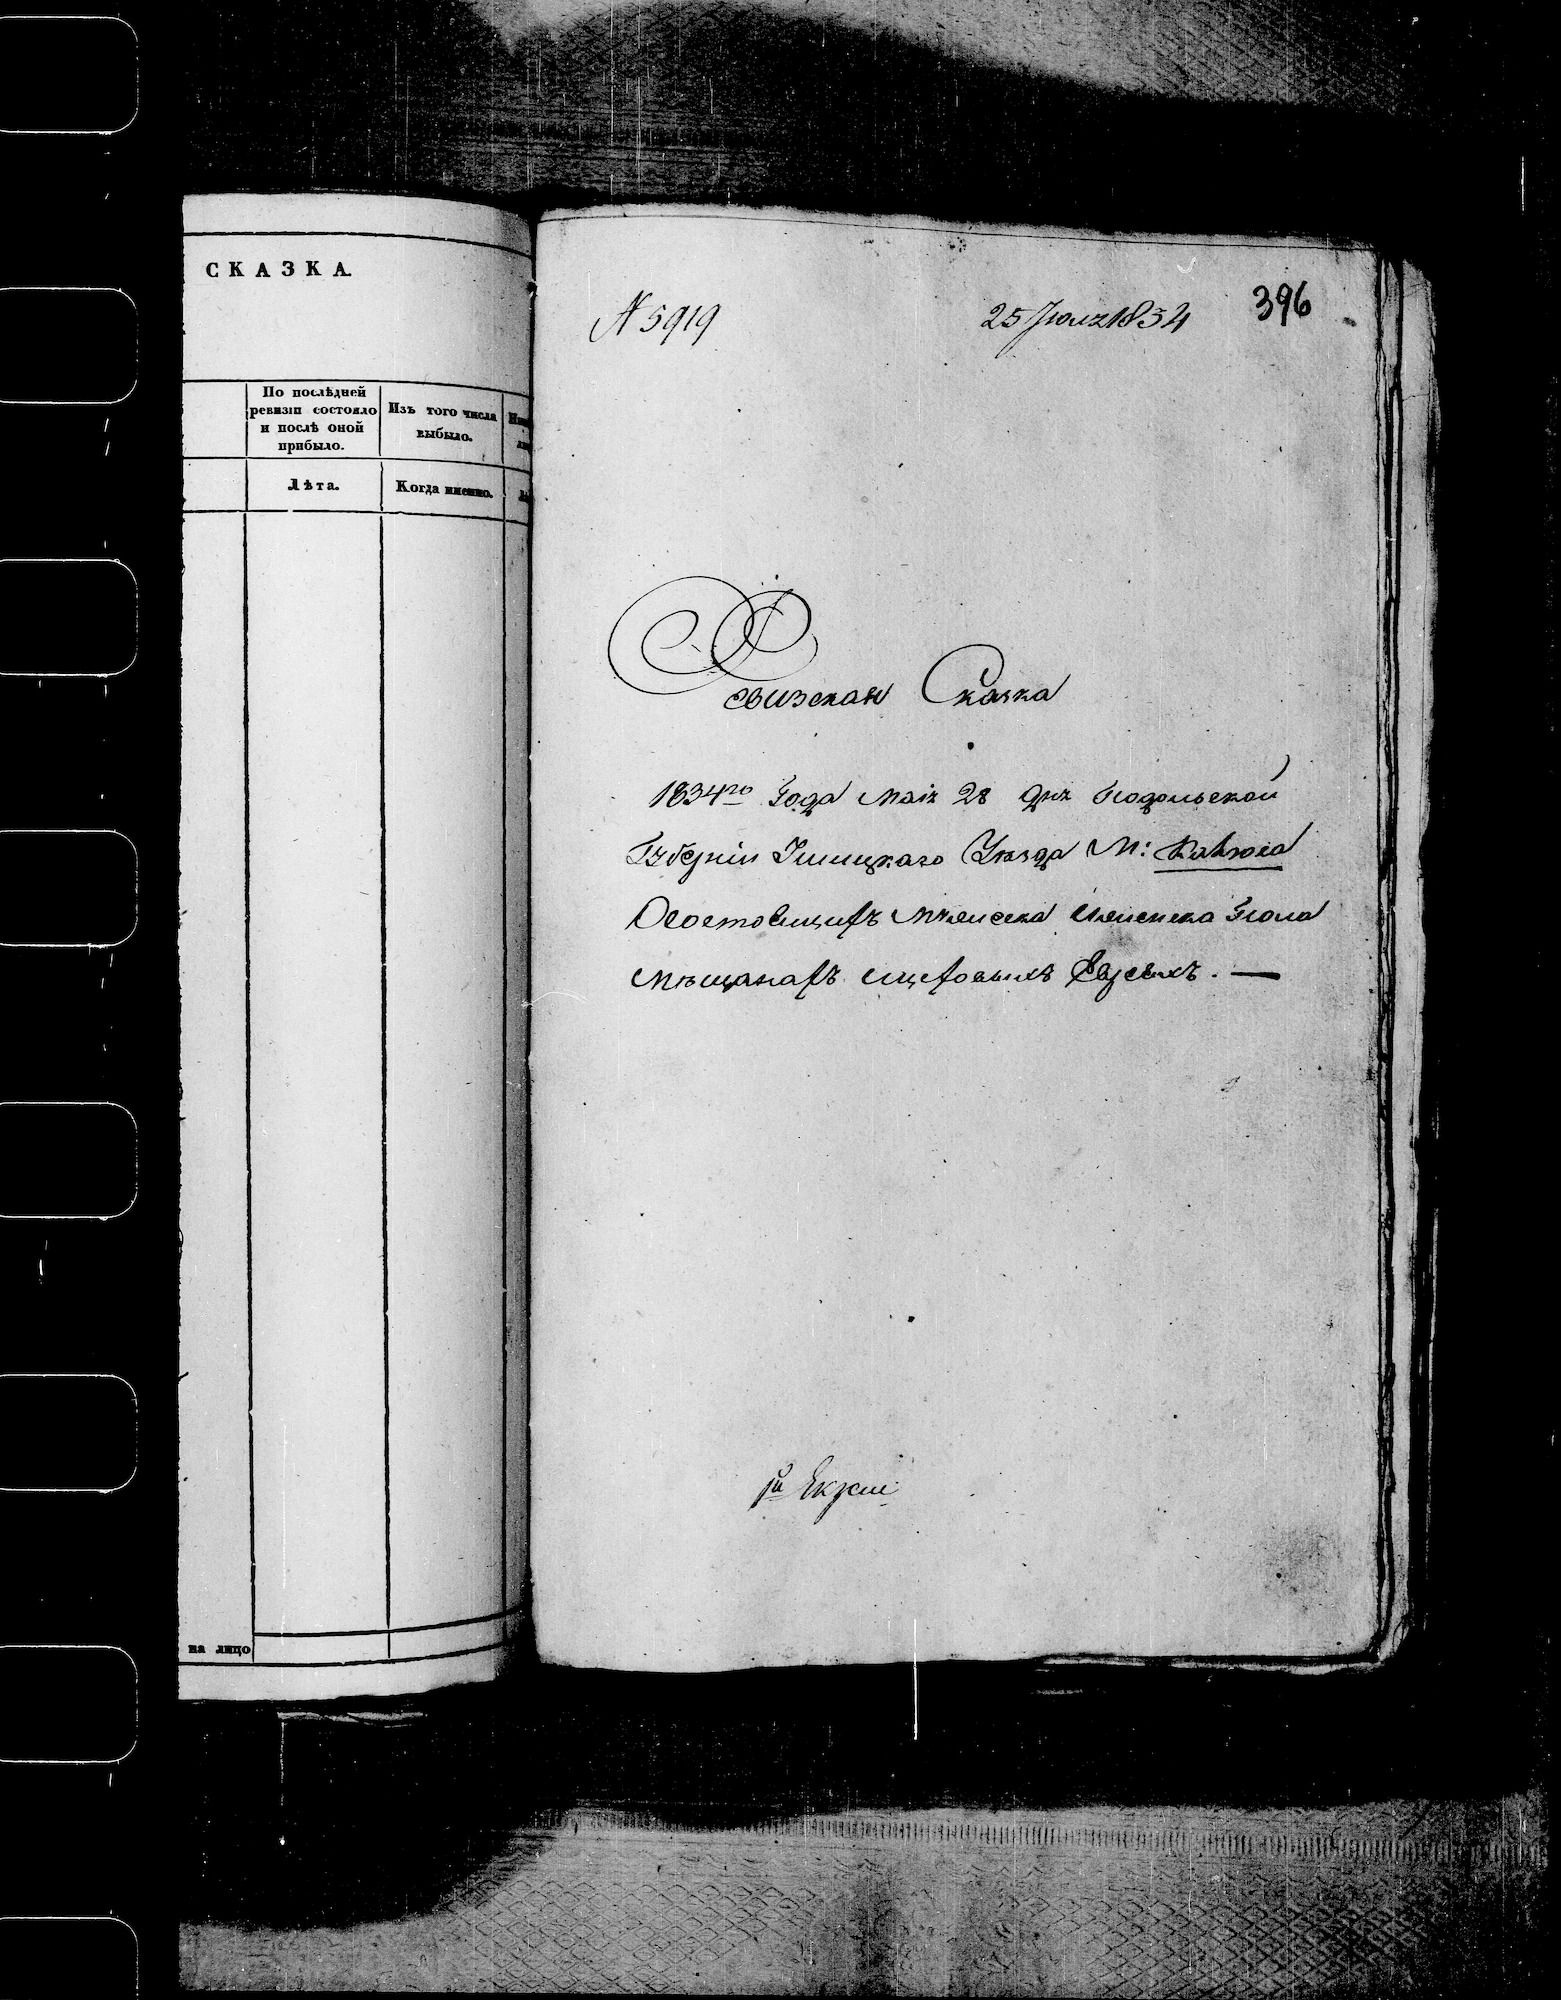 СКАЗКА.
По послѣдней
ревизіи состояло
и послѣ оной
прибыло.
Изъ того числа
выбыло.
Лѣта.
Когда именно.
на лицо
N 5919
25 Іюля 1834
396
Ревизская Сказка
1834го Года Маія 28 дня Подольской
Губерніи Ушицкаго Уѣзда М:
О состоящихъ мужеска и женска пола
мѣщанахъ Евреяхъ. —